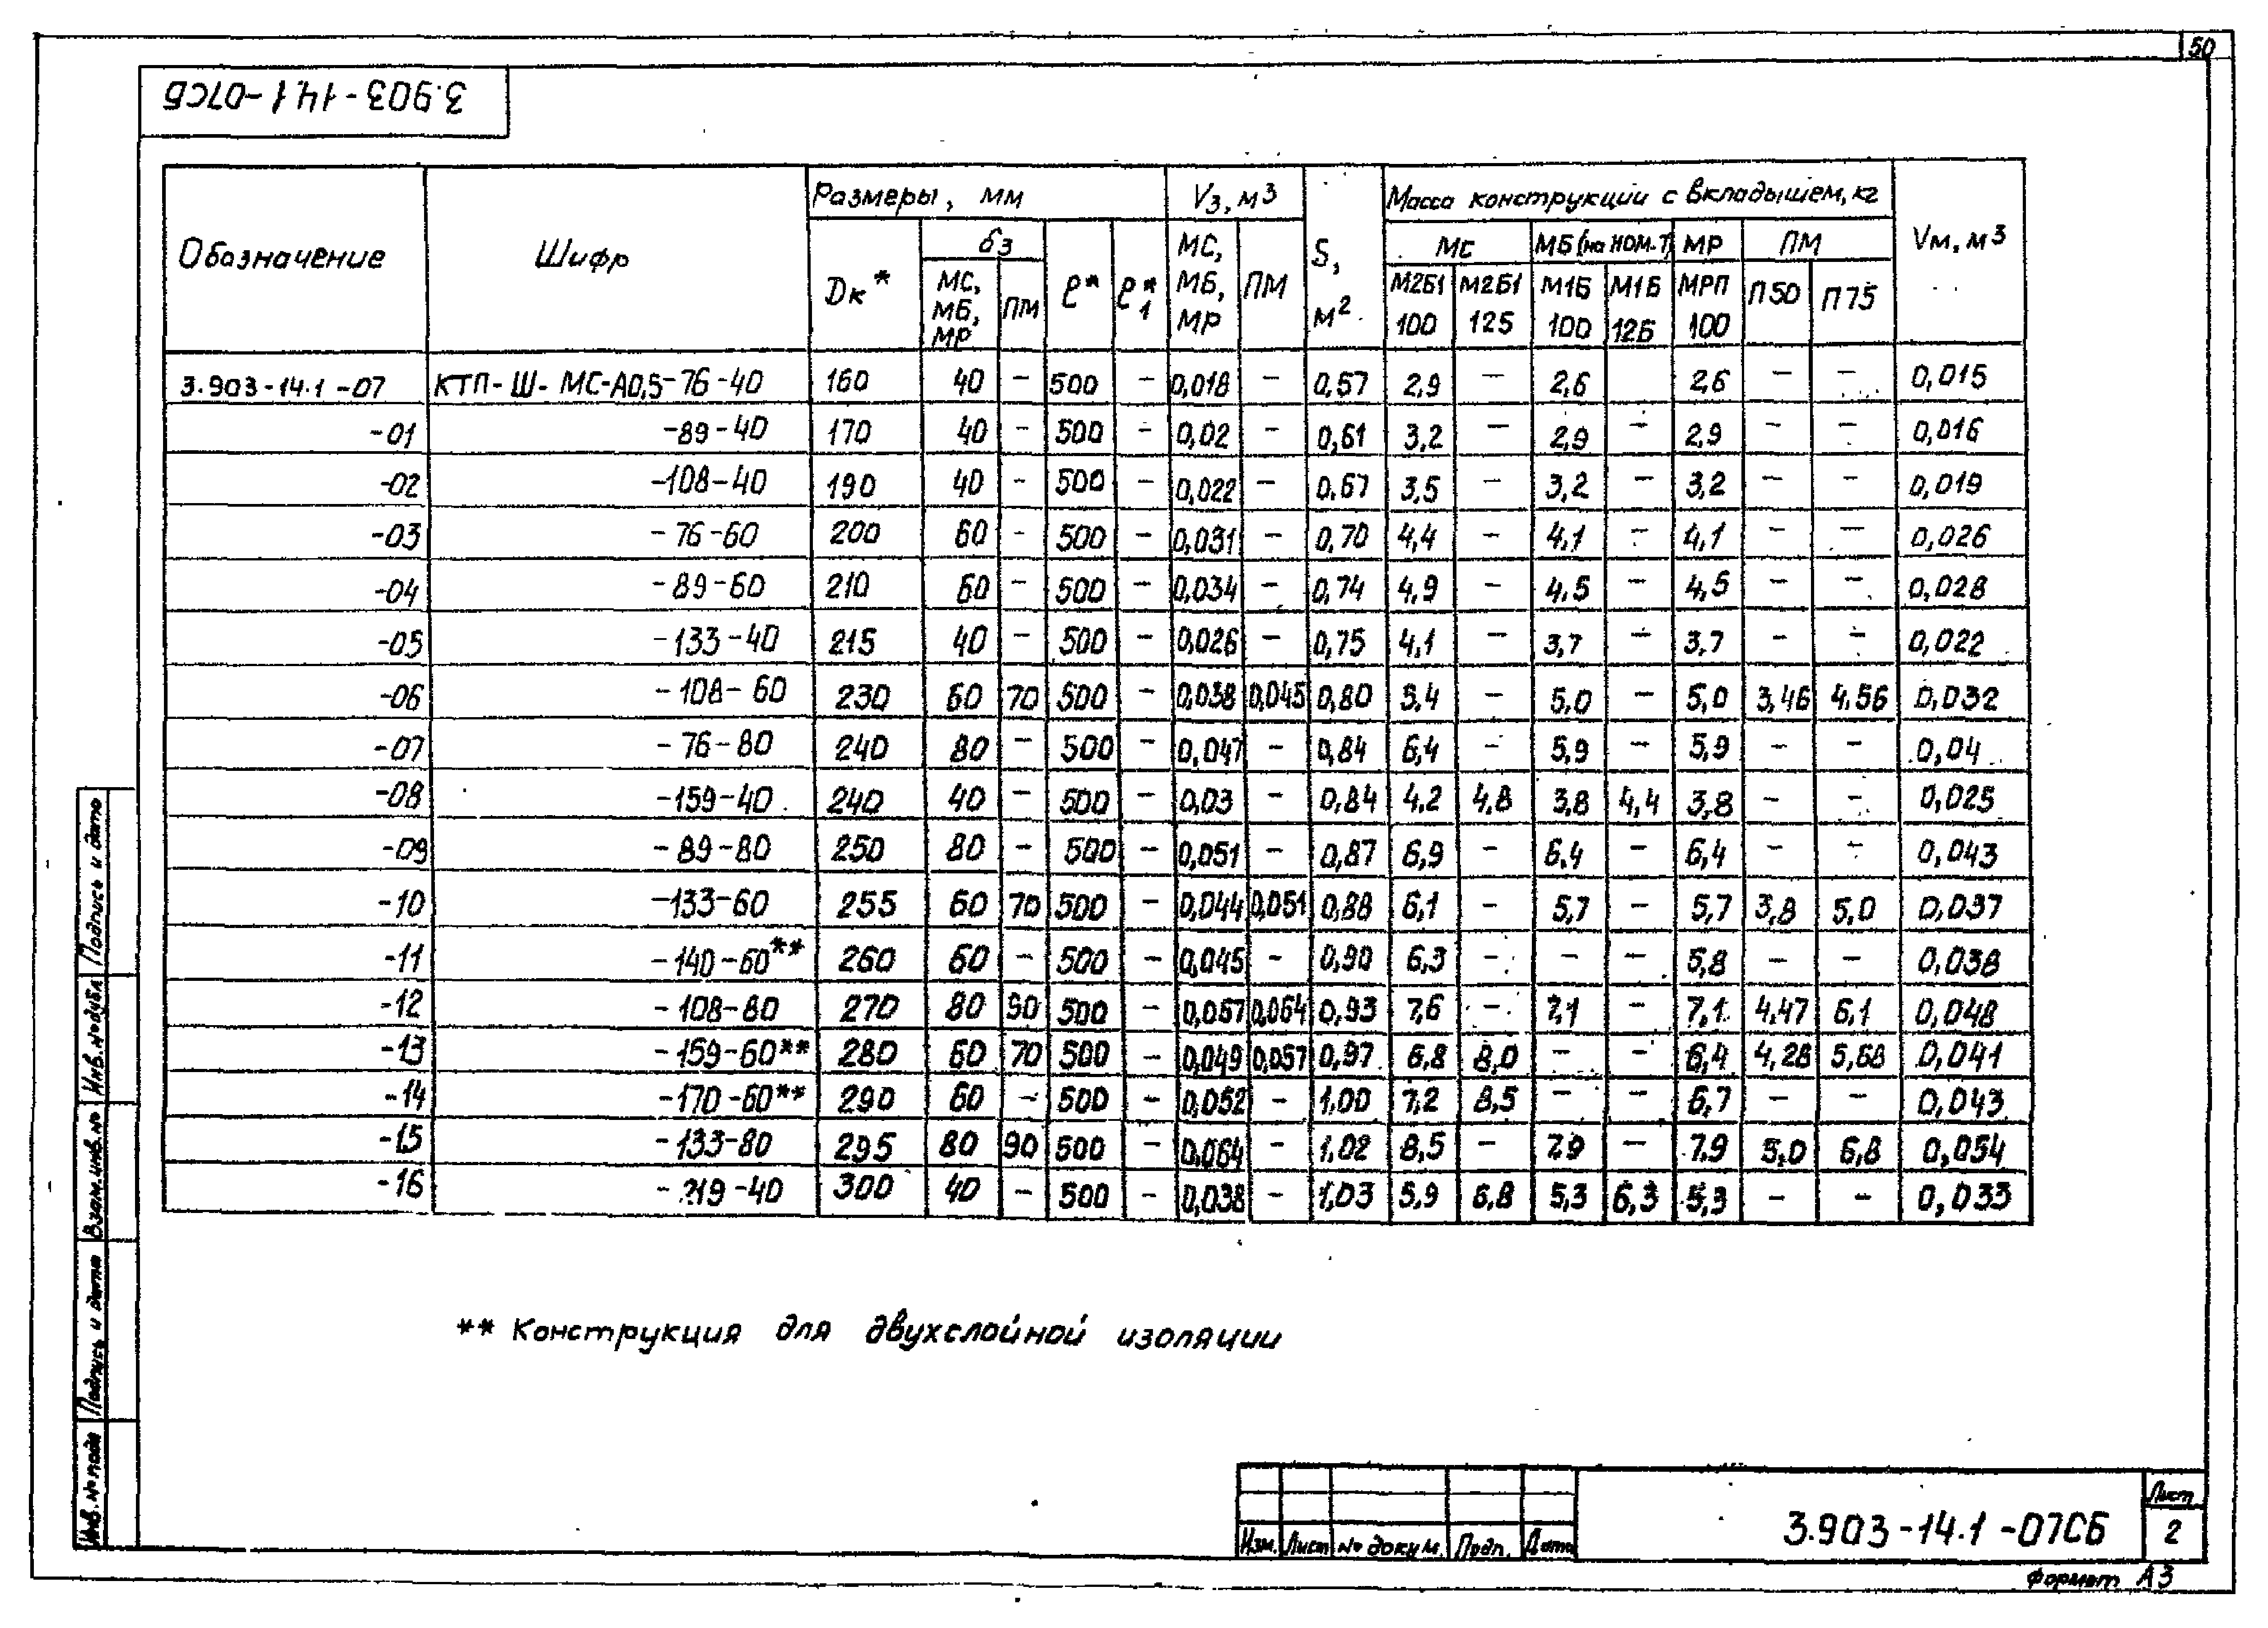 50
3.903-14.1-07СБ
Обозначение | Шифр | Размеры, мм | Vз, м³ | S, м² | Масса конструкции с вкладышем, кг | Vм, м³
Dк* | δз | ℓ* | ℓ₁* | МС, МБ, МР | ПМ | МС | МБ (на ном. Т) | МР | ПМ
МС, МБ, МР | ПМ | М2Б1 100 | М2Б1 125 | М1Б 100 | М1Б 125 | МРП 100 | П50 | П75
3.903-14.1-07 | КТП-Ш-МС-А0,5-76-40 | 160 | 40 | – | 500 | – | 0,018 | – | 0,57 | 2,9 | – | 2,6 | | 2,6 | – | – | 0,015
-01 | -89-40 | 170 | 40 | – | 500 | – | 0,02 | – | 0,61 | 3,2 | – | 2,9 | – | 2,9 | – | – | 0,016
-02 | -108-40 | 190 | 40 | – | 500 | – | 0,022 | – | 0,67 | 3,5 | – | 3,2 | – | 3,2 | – | – | 0,019
-03 | -76-60 | 200 | 60 | – | 500 | – | 0,031 | – | 0,70 | 4,4 | – | 4,1 | – | 4,1 | – | – | 0,026
-04 | -89-60 | 210 | 60 | – | 500 | – | 0,034 | – | 0,74 | 4,9 | – | 4,5 | – | 4,5 | – | – | 0,028
-05 | -133-40 | 215 | 40 | – | 500 | – | 0,026 | – | 0,75 | 4,1 | – | 3,7 | – | 3,7 | – | – | 0,022
-06 | -108-60 | 230 | 60 | 70 | 500 | – | 0,038 | 0,045 | 0,80 | 5,4 | – | 5,0 | – | 5,0 | 3,46 | 4,56 | 0,032
-07 | -76-80 | 240 | 80 | – | 500 | – | 0,047 | – | 0,84 | 6,4 | – | 5,9 | – | 5,9 | – | – | 0,04
-08 | -159-40 | 240 | 40 | – | 500 | – | 0,03 | – | 0,84 | 4,2 | 4,8 | 3,8 | 4,4 | 3,8 | – | – | 0,025
-09 | -89-80 | 250 | 80 | – | 500 | – | 0,051 | – | 0,87 | 6,9 | – | 6,4 | – | 6,4 | – | – | 0,043
-10 | -133-60 | 255 | 60 | 70 | 500 | – | 0,044 | 0,051 | 0,88 | 6,1 | – | 5,7 | – | 5,7 | 3,8 | 5,0 | 0,037
-11 | -140-60** | 260 | 60 | – | 500 | – | 0,045 | – | 0,90 | 6,3 | – | – | – | 5,8 | – | – | 0,038
-12 | -108-80 | 270 | 80 | 90 | 500 | – | 0,057 | 0,064 | 0,93 | 7,6 | – | 7,1 | – | 7,1 | 4,47 | 6,1 | 0,048
-13 | -159-60** | 280 | 60 | 70 | 500 | – | 0,049 | 0,057 | 0,97 | 6,8 | 8,0 | – | – | 6,4 | 4,28 | 5,68 | 0,041
-14 | -170-60** | 290 | 60 | – | 500 | – | 0,052 | – | 1,00 | 7,2 | 8,5 | – | – | 6,7 | – | – | 0,043
-15 | -133-80 | 295 | 80 | 90 | 500 | – | 0,064 | – | 1,02 | 8,5 | – | 7,9 | – | 7,9 | 5,0 | 6,8 | 0,054
-16 | -219-40 | 300 | 40 | – | 500 | – | 0,038 | – | 1,03 | 5,9 | 6,8 | 5,3 | 6,3 | 5,3 | – | – | 0,033
** Конструкция для двухслойной изоляции
Подпись и дата
Инв. № дубл
Взам. инв. №
Подпись и дата
Инв. № подл
Изм. Лист № докум. Подп. Дата
3.903-14.1-07СБ
Лист
2
Формат А3